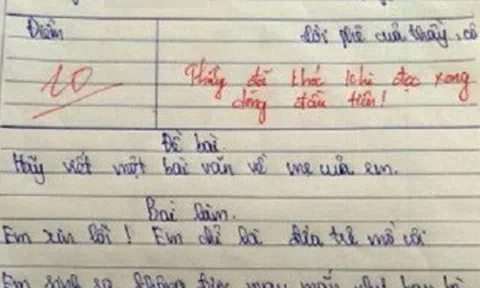 Điểm
Lời phê của thầy, cô
10
Thầy đã khóc khi đọc xong
dòng đầu tiên!
Đề bài.
Hãy viết một bài văn về mẹ của em.
Bài làm.
Em xin lỗi! Em chỉ là đứa trẻ mồ côi
Em sinh ra không được may mắn như bạn bè